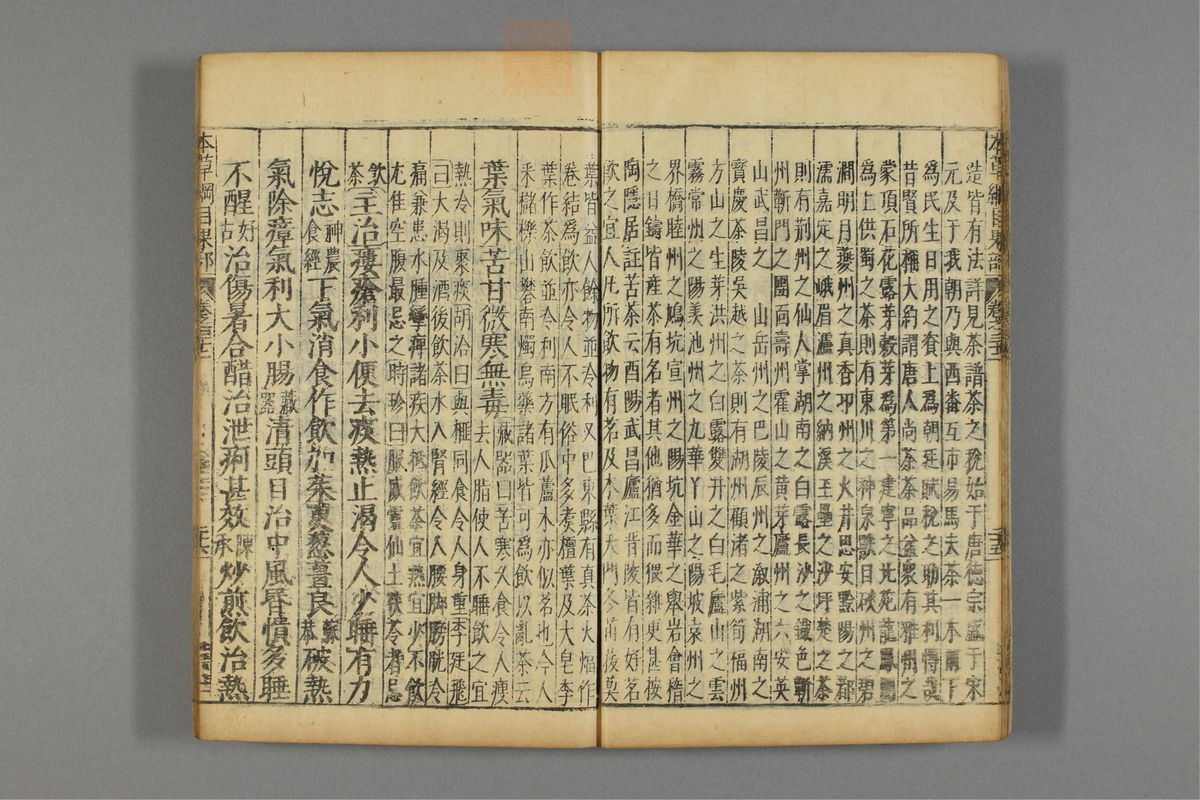 造皆有法詳見茶譜茶之稅始于唐德宗盛于宋
元及于我朝乃與西番互市易馬夫茶一木爾下
為民生日用之資上為朝廷賦稅之助其利博哉
昔賢所稱大約謂唐人尚茶茶品益衆有雅州之
蒙頂石花露芽穀芽為第一建寧之北苑龍鳳團
為上供蜀之茶則有東川之神泉獸目硤州之碧
澗明月夔州之真香邛州之火井思安黔陽之都
濡嘉定之峨眉瀘州之納溪玉壘之沙坪楚之茶
則有荊州之仙人掌湖南之白露長沙之鐵色蘄
州蘄門之團面壽州霍山之黃芽廬州之六安英
山武昌之 山岳州之巴陵辰州之漵浦湖南之
寶慶茶陵吳越之茶則有湖州顧渚之紫筍福州
方山之生芽洪州之白露雙井之白毛廬山之雲
霧常州之陽羨池州之九華丫山之陽坡袁州之
界橋睦州之鳩坑宣州之陽坑金華之舉岩會稽
之日鑄皆產茶有名者其他猶多而猥雜更甚按
陶隱居註苦茶云酉陽武昌廬江晉陵皆有好茗
飲之宜人凡所飲物有茗及木葉天門冬苗菝葜
葉皆益人餘物並冷利又巴東縣有真茶火煏作
卷結為飲亦令人不眠俗中多煮檀葉及大皂李
葉作茶飲並冷利南方有瓜蘆木亦似茗也今人
采櫧櫟山礬南燭烏藥諸葉皆可為飲以亂茶云
葉氣味苦甘微寒無毒藏器曰苦寒久食令人瘦去人脂使人不睡飲之宜
熱冷則聚痰胡洽曰與榧同食令人身重李廷飛
曰大渴及酒後飲茶水入腎經令人腰脚膀胱冷
痛兼患水腫攣痺諸疾大抵飲茶宜熱宜少不飲
尤佳空腹最忌之時珍曰服威靈仙土茯苓者忌
飲茶主治瘻瘡利小便去痰熱止渴令人少睡有力
悅志神農食經下氣消食作飲加茱萸葱薑良蘇恭破熱
氣除瘴氣利大小腸藏器清頭目治中風昏憒多睡
不醒好古治傷暑合醋治泄痢甚效陳承炒煎飲治熱
本草綱目果部